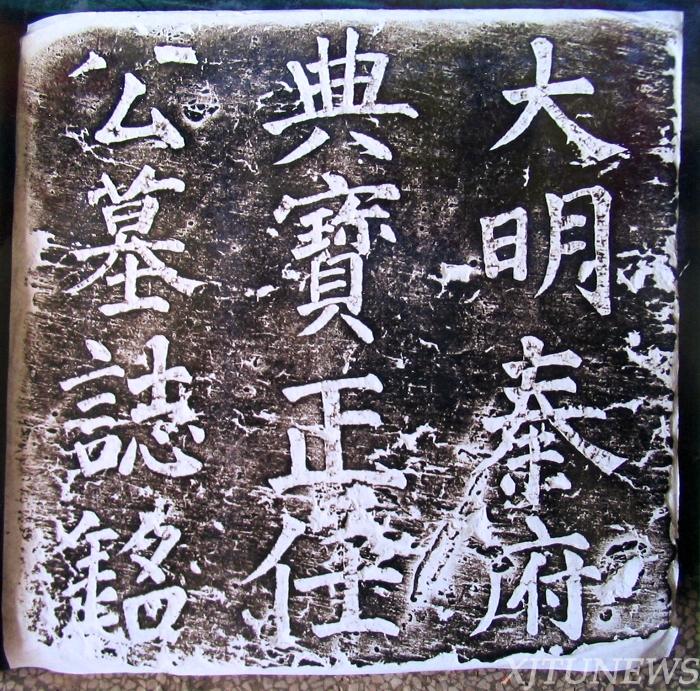 大明秦府
典寶正任
公墓誌銘
XJTUNEWS